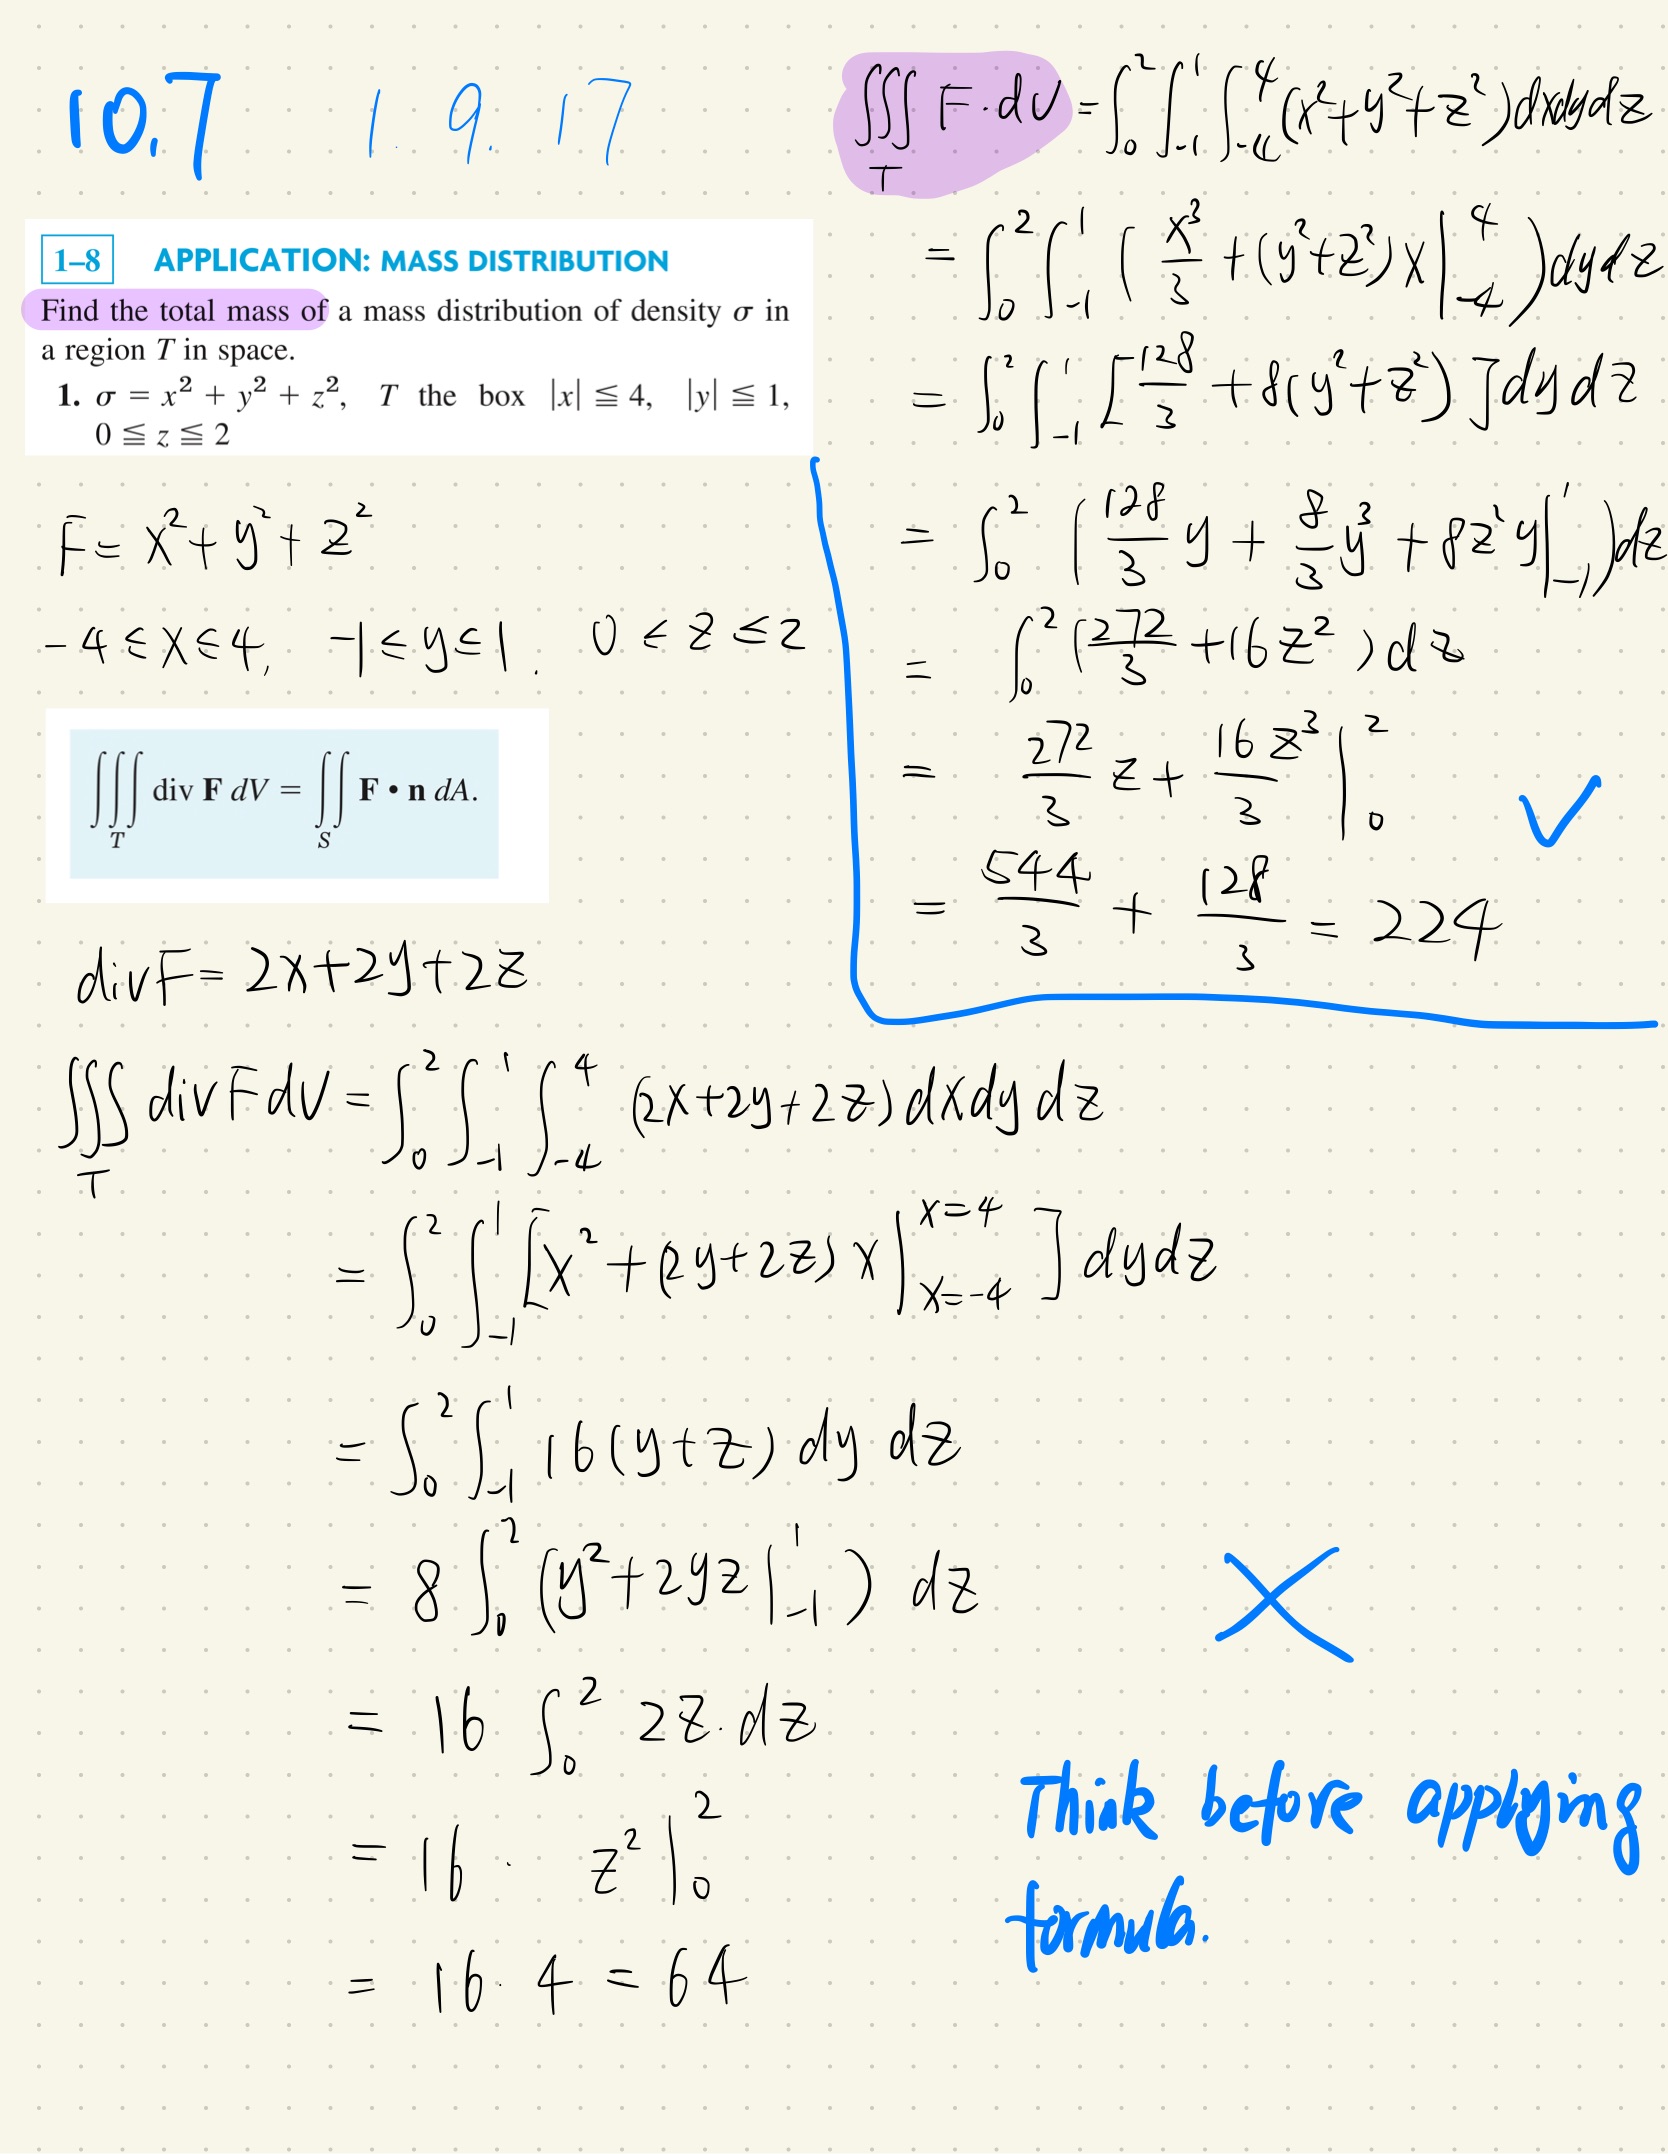 10.7 1. 9. 17
1–8 APPLICATION: MASS DISTRIBUTION
Find the total mass of a mass distribution of density σ in
a region T in space.
1. σ = x² + y² + z², T the box |x| ≦ 4, |y| ≦ 1,
0 ≦ z ≦ 2
F = x² + y² + z²
-4 ≤ x ≤ 4, -1 ≤ y ≤ 1. 0 ≤ z ≤ 2
∭_T div F dV = ∬_S F • n dA.
div F = 2x+2y+2z
∭_T div F dV = ∫_0^2 ∫_-1^1 ∫_-4^4 (2x+2y+2z) dx dy dz
= ∫_0^2 ∫_-1^1 [x² + (2y+2z) x |_{x=-4}^{x=4} ] dy dz
= ∫_0^2 ∫_-1^1 16(y+z) dy dz
= 8 ∫_0^2 (y²+2yz |_-1^1 ) dz
= 16 ∫_0^2 2z · dz
= 16 · z² |_0^2
= 16 · 4 = 64
∭_T F · dV = ∫_0^2 ∫_-1^1 ∫_-4^4 (x²+y²+z²) dx dy dz
= ∫_0^2 ∫_-1^1 ( x³/3 + (y²+z²) x |_-4^4 ) dy dz
= ∫_0^2 ∫_-1^1 [ -128/3 + 8(y²+z²) ] dy dz
= ∫_0^2 ( 128/3 y + 8/3 y³ + 8z²y |_-1^1 ) dz
= ∫_0^2 ( 272/3 + 16z² ) dz
= 272/3 z + 16z³/3 |_0^2 ✓
= 544/3 + 128/3 = 224
Think before applying
formula.